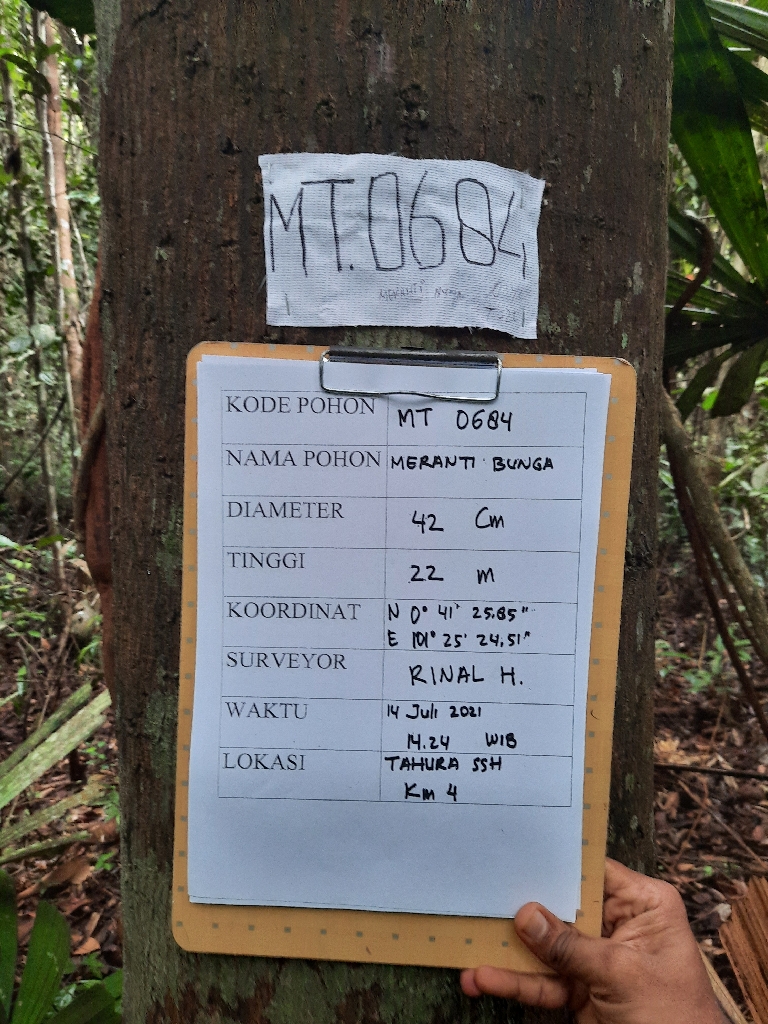 MT.0684
MERANTI BUNGA
KODE POHON MT 0684
NAMA POHON MERANTI BUNGA
DIAMETER 42 Cm
TINGGI 22 m
KOORDINAT N 0° 41' 25.85"
E 101° 25' 24.51"
SURVEYOR RINAL H.
WAKTU 14 Juli 2021
14.24 WIB
LOKASI TAHURA SSH
Km 4